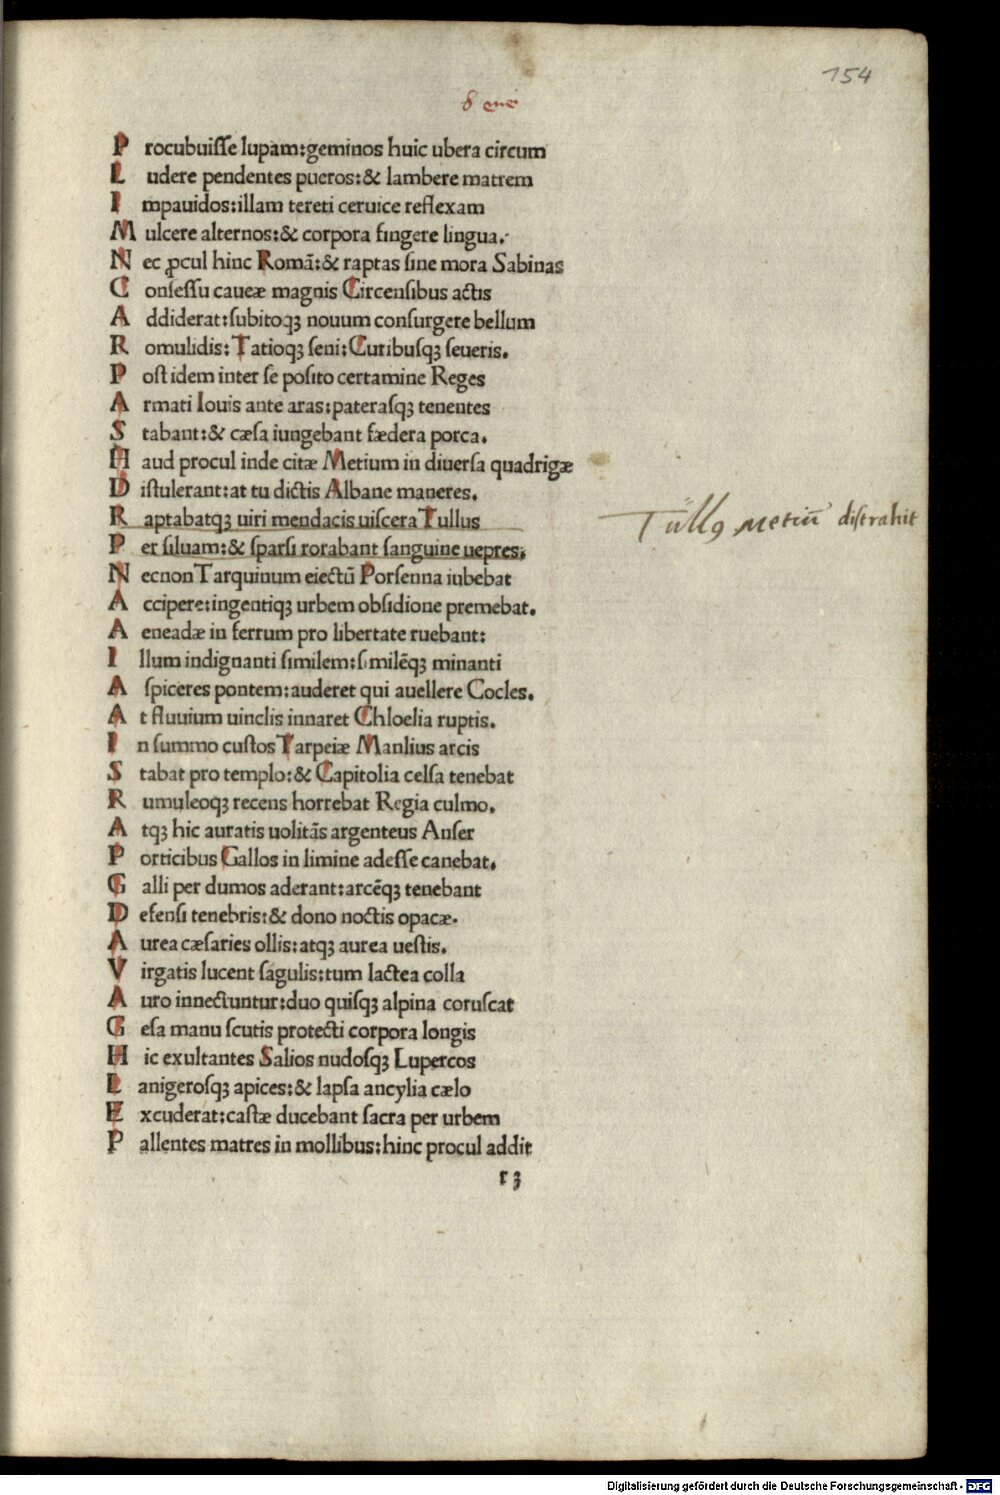 154
8 ene
P rocubuiſſe lupam:geminos huic ubera circum
L udere pendentes pueros:& lambere matrem
I mpauidos:illam tereti ceruice reflexam
M ulcere alternos:& corpora fingere lingua.
N ec ꝓcul hinc Romā:& raptas ſine mora Sabinas
C onſeſſu caueæ magnis Circenſibus actis
A ddiderat:ſubitoqꝫ nouum conſurgere bellum
R omulidis:Tatioqꝫ ſeni:Curibuſqꝫ ſeueris.
P oſt idem inter ſe poſito certamine Reges
A rmati Iouis ante aras:pateraſqꝫ tenentes
S tabant:& cæſa iungebant fædera porca.
H aud procul inde citæ Metium in diuerſa quadrigæ
D iſtulerant:at tu dictis Albane maneres.
R aptabatqꝫ uiri mendacis uiſcera Tullus
Tullꝯ Metiū diſtrahit
P er ſiluam:& ſparſi rorabant ſanguine uepres.
N ecnon Tarquinum eiectū Porſenna iubebat
A ccipere:ingentiqꝫ urbem obſidione premebat.
A eneadæ in ferrum pro libertate ruebant:
I llum indignanti ſimilem:ſimilēqꝫ minanti
A ſpiceres pontem:auderet qui auellere Cocles.
A t fluuium uinclis innaret Chloelia ruptis.
I n ſummo cuſtos Tarpeiæ Manlius arcis
S tabat pro templo:& Capitolia celſa tenebat
R umuleoqꝫ recens horrebat Regia culmo.
A tqꝫ hic auratis uolitās argenteus Anſer
P orticibus Gallos in limine adeſſe canebat.
G alli per dumos aderant:arcēqꝫ tenebant
D efenſi tenebris:& dono noctis opacæ.
A urea cæſaries ollis:atqꝫ aurea ueſtis.
V irgatis lucent ſagulis:tum lactea colla
A uro innectuntur:duo quiſqꝫ alpina coruſcat
G eſa manu ſcutis protecti corpora longis
H ic exultantes Salios nudoſqꝫ Lupercos
L anigeroſqꝫ apices:& lapſa ancylia cælo
E xcuderat:caſtæ ducebant ſacra per urbem
P allentes matres in mollibus:hinc procul addit
r 3
Digitalisierung gefördert durch die Deutsche Forschungsgemeinschaft - DFG